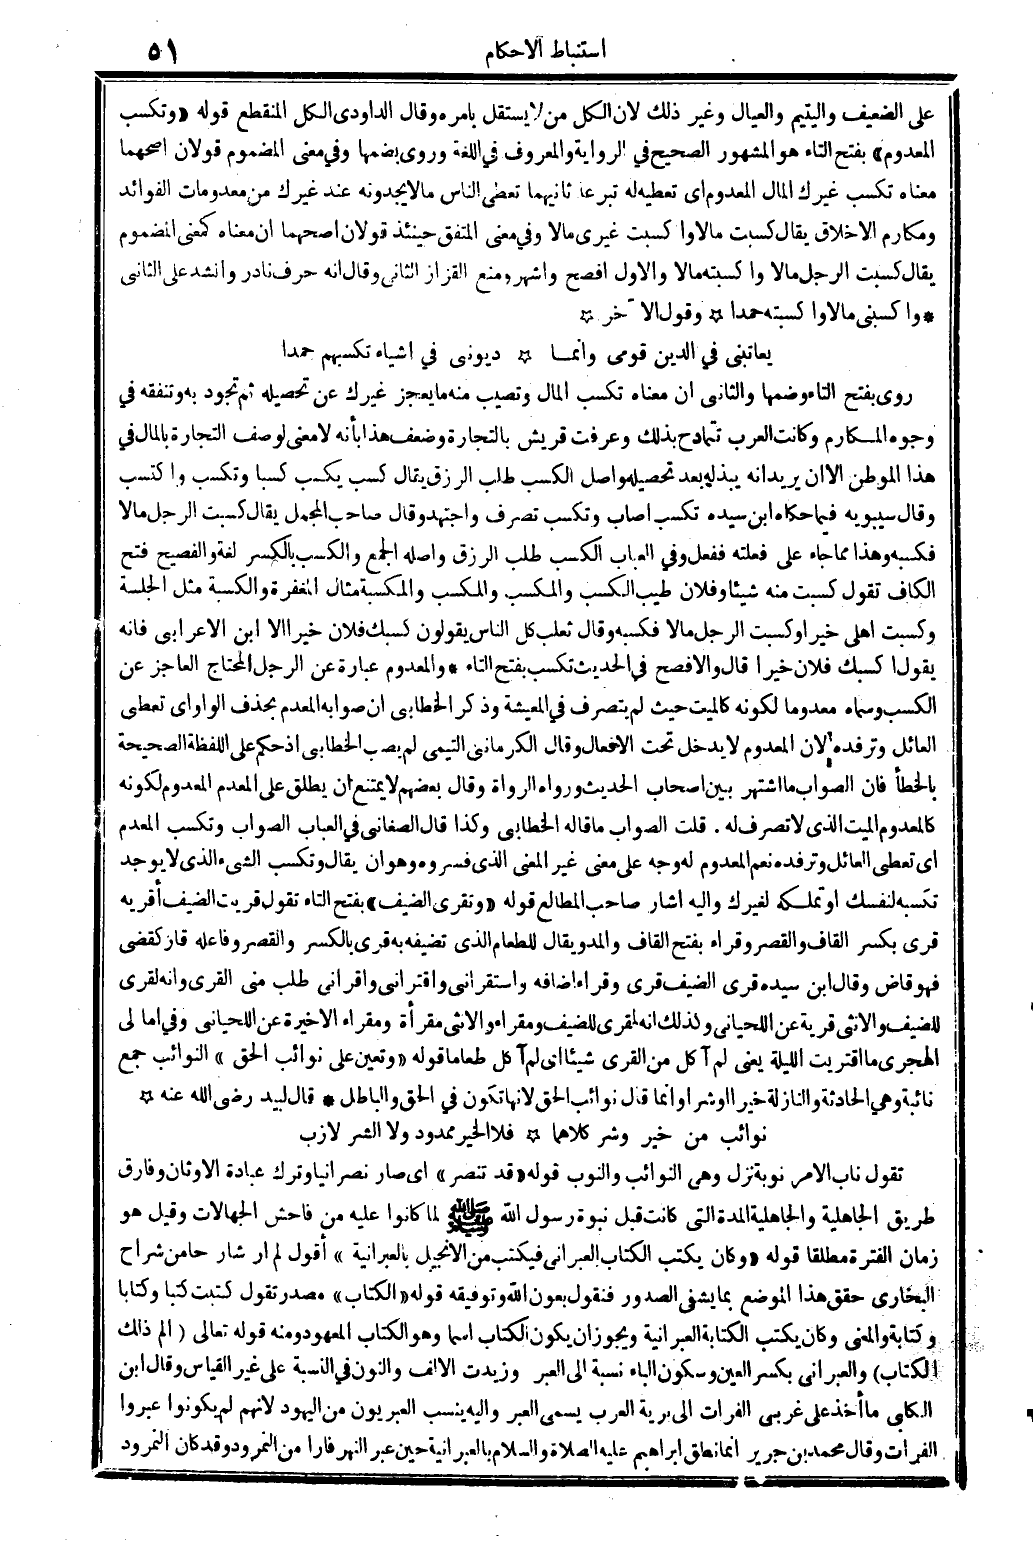 استنباط الاحكام ٥١
على الضعيف واليتيم والعيال وغير ذلك لان الكل من لا يستقل بامره وقال الداودى الكل المنقطع قوله «وتكسب
المعدوم» بفتح التاء هو المشهور الصحيح في الرواية والمعروف في اللغة وروى بضمها وفي معنى المضموم قولان اصحهما
معناه تكسب غيرك المال المعدوم اى تعطيه له تبرعا ثانيهما تعطى الناس مالا يجدونه عند غيرك من معدومات الفوائد
ومكارم الاخلاق يقال كسبت مالا واكسبت غيرى مالا وفي معنى المتفق حينئذ قولان اصحهما ان معناه كمعنى المضموم
يقال كسبت الرجل مالا واكسبته مالا والاول افصح واشهر ومنع القزاز الثانى وقال انه حرف نادر وانشد على الثانى
* واكسبنى مالا واكسبته حمدا ☆ وقول الآخر ☆
يعاتبنى في الدين قومى وانما ☆ ديونى في اشياء تكسبهم حمدا
روى بفتح التاء وضمها والثانى ان معناه تكسب المال وتصيب منه ما يعجز غيرك عن تحصيله ثم تجود به وتنفقه في
وجوه المكارم وكانت العرب تتمادح بذلك وعرفت قريش بالتجارة وضعف هذا بأنه لا معنى لوصف التجارة بالمال في
هذا الموطن الا ان يريد انه يبذله بعد تحصيله واصل الكسب طلب الرزق يقال كسب يكسب كسبا وتكسب واكتسب
وقال سيبويه فيما حكاه ابن سيده تكسب اصاب وتكسب تصرف واجتهد وقال صاحب المجمل يقال كسبت الرجل مالا
فكسبه وهذا مما جاء على فعلته ففعل وفي العباب الكسب طلب الرزق واصله الجمع والكسب بالكسر لغة والفصيح فتح
الكاف تقول كسبت منه شيئا وفلان طيب الكسب والمكسب والمكسب والمكسبة مثال المغفرة والكسبة مثل الجلسة
وكسبت اهلى خيرا وكسبت الرجل مالا فكسبه وقال ثعلب كل الناس يقولون كسبك فلان خيرا الا ابن الاعرابى فانه
يقول اكسبك فلان خيرا قال والافصح في الحديث تكسب بفتح التاء * والمعدوم عبارة عن الرجل المحتاج العاجز عن
الكسب وسماه معدوما لكونه كالميت حيث لم يتصرف في المعيشة وذكر الخطابى ان صوابه المعدم بحذف الواو اى تعطى
العائل وترفده لان المعدوم لا يدخل تحت الافعال وقال الكرمانى التيمى لم يصب الخطابى اذ حكم على اللفظة الصحيحة
بالخطأ فان الصواب ما اشتهر بين اصحاب الحديث ورواه الرواة وقال بعضهم لا يمتنع ان يطلق على المعدم المعدوم لكونه
كالمعدوم الميت الذى لا تصرف له . قلت الصواب ما قاله الخطابى وكذا قال الصغانى في العباب الصواب وتكسب المعدم
اى تعطى العائل وترفده نعم المعدوم له وجه على معنى غير المعنى الذى فسروه وهو ان يقال وتكسب الشىء الذى لا يوجد
تكسبه لنفسك او تملكه لغيرك واليه اشار صاحب المطالع قوله «وتقرى الضيف» بفتح التاء تقول قريت الضيف أقريه
قرى بكسر القاف والقصر وقراء بفتح القاف والمد ويقال للطعام الذى تضيفه به قرى بالكسر والقصر وفاعله قار كقضى
فهو قاض وقال ابن سيده قرى الضيف قرى وقراء اضافه واستقرانى واقترانى واقرانى طلب منى القرى وانه لقرى
للضيف والانثى قرية عن اللحيانى وكذلك انه لمقرى للضيف ومقراء والانثى مقرأة ومقراء الاخيرة عن اللحيانى وفي امالى
الهجرى ما اقتريت الليلة يعنى لم آكل من القرى شيئا اى لم آكل طعاما قوله «وتعين على نوائب الحق» النوائب جمع
نائبة وهي الحادثة والنازلة خيرا او شرا وانما قال نوائب الحق لانها تكون في الحق والباطل * قال لبيد رضى الله عنه ☆
نوائب من خير وشر كلاهما ☆ فلا الخير ممدود ولا الشر لازب
تقول ناب الامر نوبة نزل وهى النوائب والنوب قوله «قد تنصر» اى صار نصرانيا وترك عبادة الاوثان وفارق
طريق الجاهلية والجاهلية المدة التى كانت قبل نبوة رسول الله ﷺ لما كانوا عليه من فاحش الجهالات وقيل هو
زمان الفترة مطلقا قوله «وكان يكتب الكتاب العبرانى فيكتب من الانجيل بالعبرانية» أقول لم ار شارحا من شراح
البخارى حقق هذا الموضع بما يشفى الصدور فنقول بعون الله وتوفيقه قوله «الكتاب» مصدر تقول كتبت كتبا وكتابا
وكتابة والمعنى وكان يكتب الكتابة العبرانية ويجوز ان يكون الكتاب اسما وهو الكتاب المعهود ومنه قوله تعالى ( الم ذلك
الكتاب) والعبرانى بكسر العين وسكون الباء نسبة الى العبر وزيدت الالف والنون في النسبة على غير القياس وقال ابن
الكلبى ما أخذ على غربى الفرات الى برية العرب يسمى العبر واليه ينسب العبريون من اليهود لانهم لم يكونوا عبروا
الفرات وقال محمد بن جرير انما نطق ابراهيم عليه الصلاة والسلام بالعبرانية حين عبر النهر فارا من النمرود وقد كان النمرود